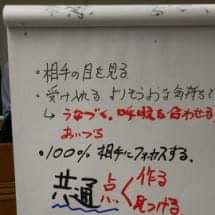 ・相手の目を見る
・受け入れる、よりそうような気持ちで
↳ うなづく、呼吸を合わせる
あいづち
・100% 相手にフォーカスする。
共通点く作る
見つける